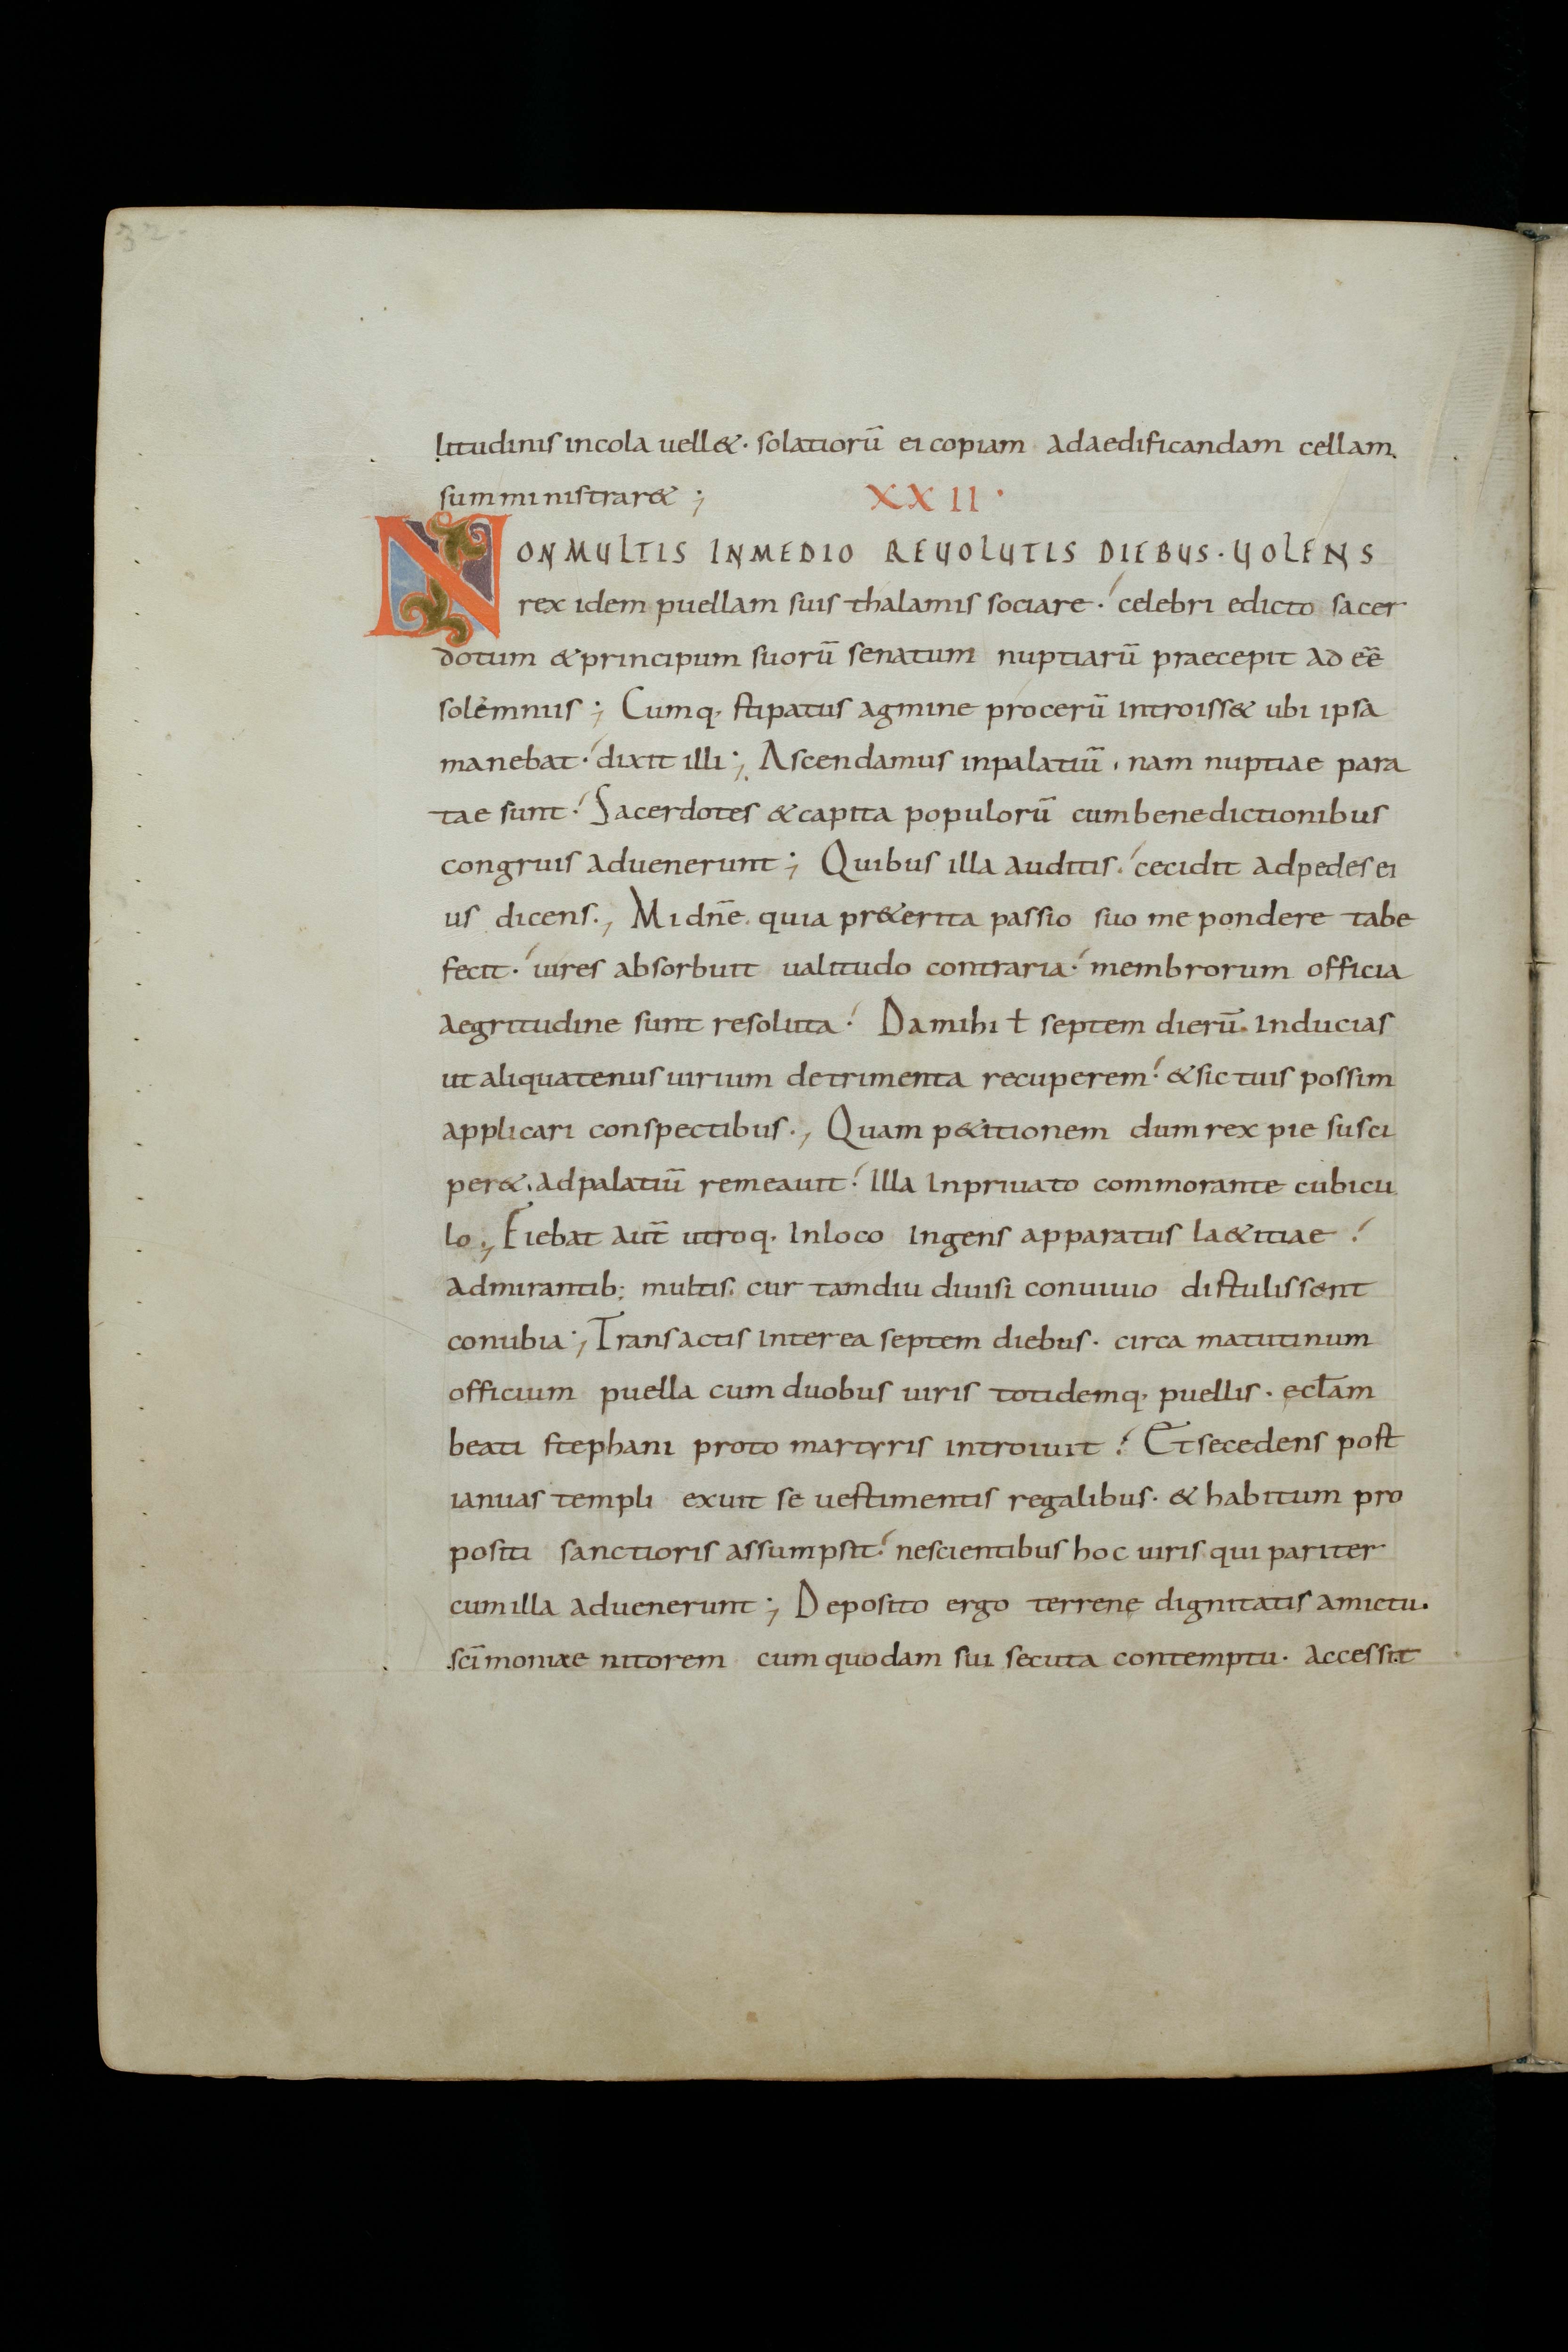 32.
litudinis incola uell&. solatiorū ei copiam adaedificandam cellam.
sumministrar&; XXII.
NONMULTIS INMEDIO REUOLUTIS DIEBUS. UOLENS
rex idem puellam suis thalamis sociare. celebri edicto sacer
dotum &principum suorū senatum nuptiarū praecepit ad eē
solemniis; Cumq. stipatus agmine procerū introiss& ubi ipsa
manebat. dixit illi; Ascendamus inpalatiū. nam nuptiae para
tae sunt. Sacerdotes &capita populorū cumbenedictionibus
congruis aduenerunt; Quibus illa auditis. cecidit adpedes ei
us dicens., Mi dn̄e. quia pr&erita passio suo me pondere tabe
fecit. uires absorbuit ualitudo contraria. membrorum officia
aegritudine sunt resoluta. Damihi ƚ septem dierū. inducias
ut aliquatenus uirium detrimenta recuperem. &sic tuis possim
applicari conspectibus., Quam p&itionem dum rex pie susci
per&. adpalatiū remeauit. Illa inpriuato commorante cubicu
lo., Fiebat aut̄ utroq. inloco ingens apparatus la&itiae.
admirantib; multis. cur tamdiu diuisi conuiuio distulissent
conubia; Transactis interea septem diebus. circa matutinum
officium puella cum duobus uiris totidemq. puellis. eccƚam
beati stephani proto martyris introiuit. Et secedens post
ianuas templi exuit se uestimentis regalibus. & habitum pro
positi sanctioris assumpsit. nescientibus hoc uiris qui pariter
cumilla aduenerunt; Deposito ergo terrenę dignitatis amictu.
sc̄imoniae nitorem cum quodam sui secuta contemptu. accessit